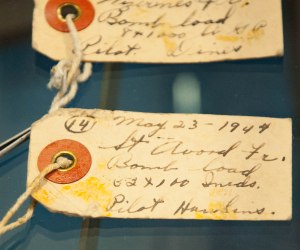 Bomb load
8 x 1000 lb G.P.
Pilot Dines
14 May 23-1944
St Avord Fr.
Bomb load
52 x 100 Inids.
Pilot Hawkins.